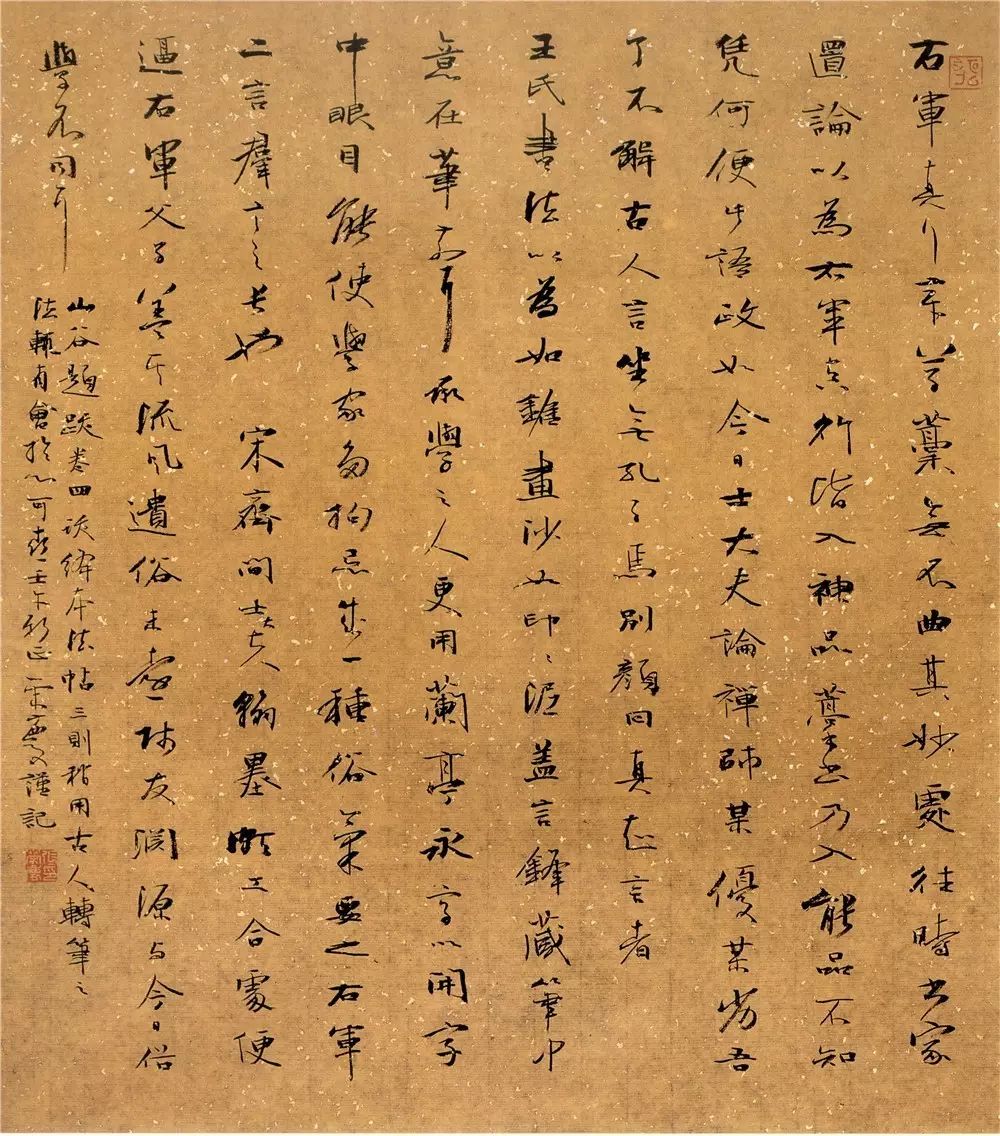 右軍真行章草藁無不曲其妙處往時書家
置論以為右軍真行皆入神品藁書乃入能品不知
凭何便此語政如今日士大夫論禪師某優某劣吾
了不解古人言坐無孔子焉別顏回真知言者
王氏書法以為如錐畫沙如印〻泥盖言鋒藏筆中
意在筆前耳承學之人更用蘭亭永字以開字
中眼目能使學家多拘忌成一種俗氣要之右軍
二言羣言之長也 宋齊間士大夫翰墨頗工合處便
逼右軍父子蓋其流風遺俗未遠師友淵源与今日俗
學不同耳
山谷題跋卷四談絳本法帖三則稍用古人轉筆之
法輒有會於心可喜壬午新正 謹記